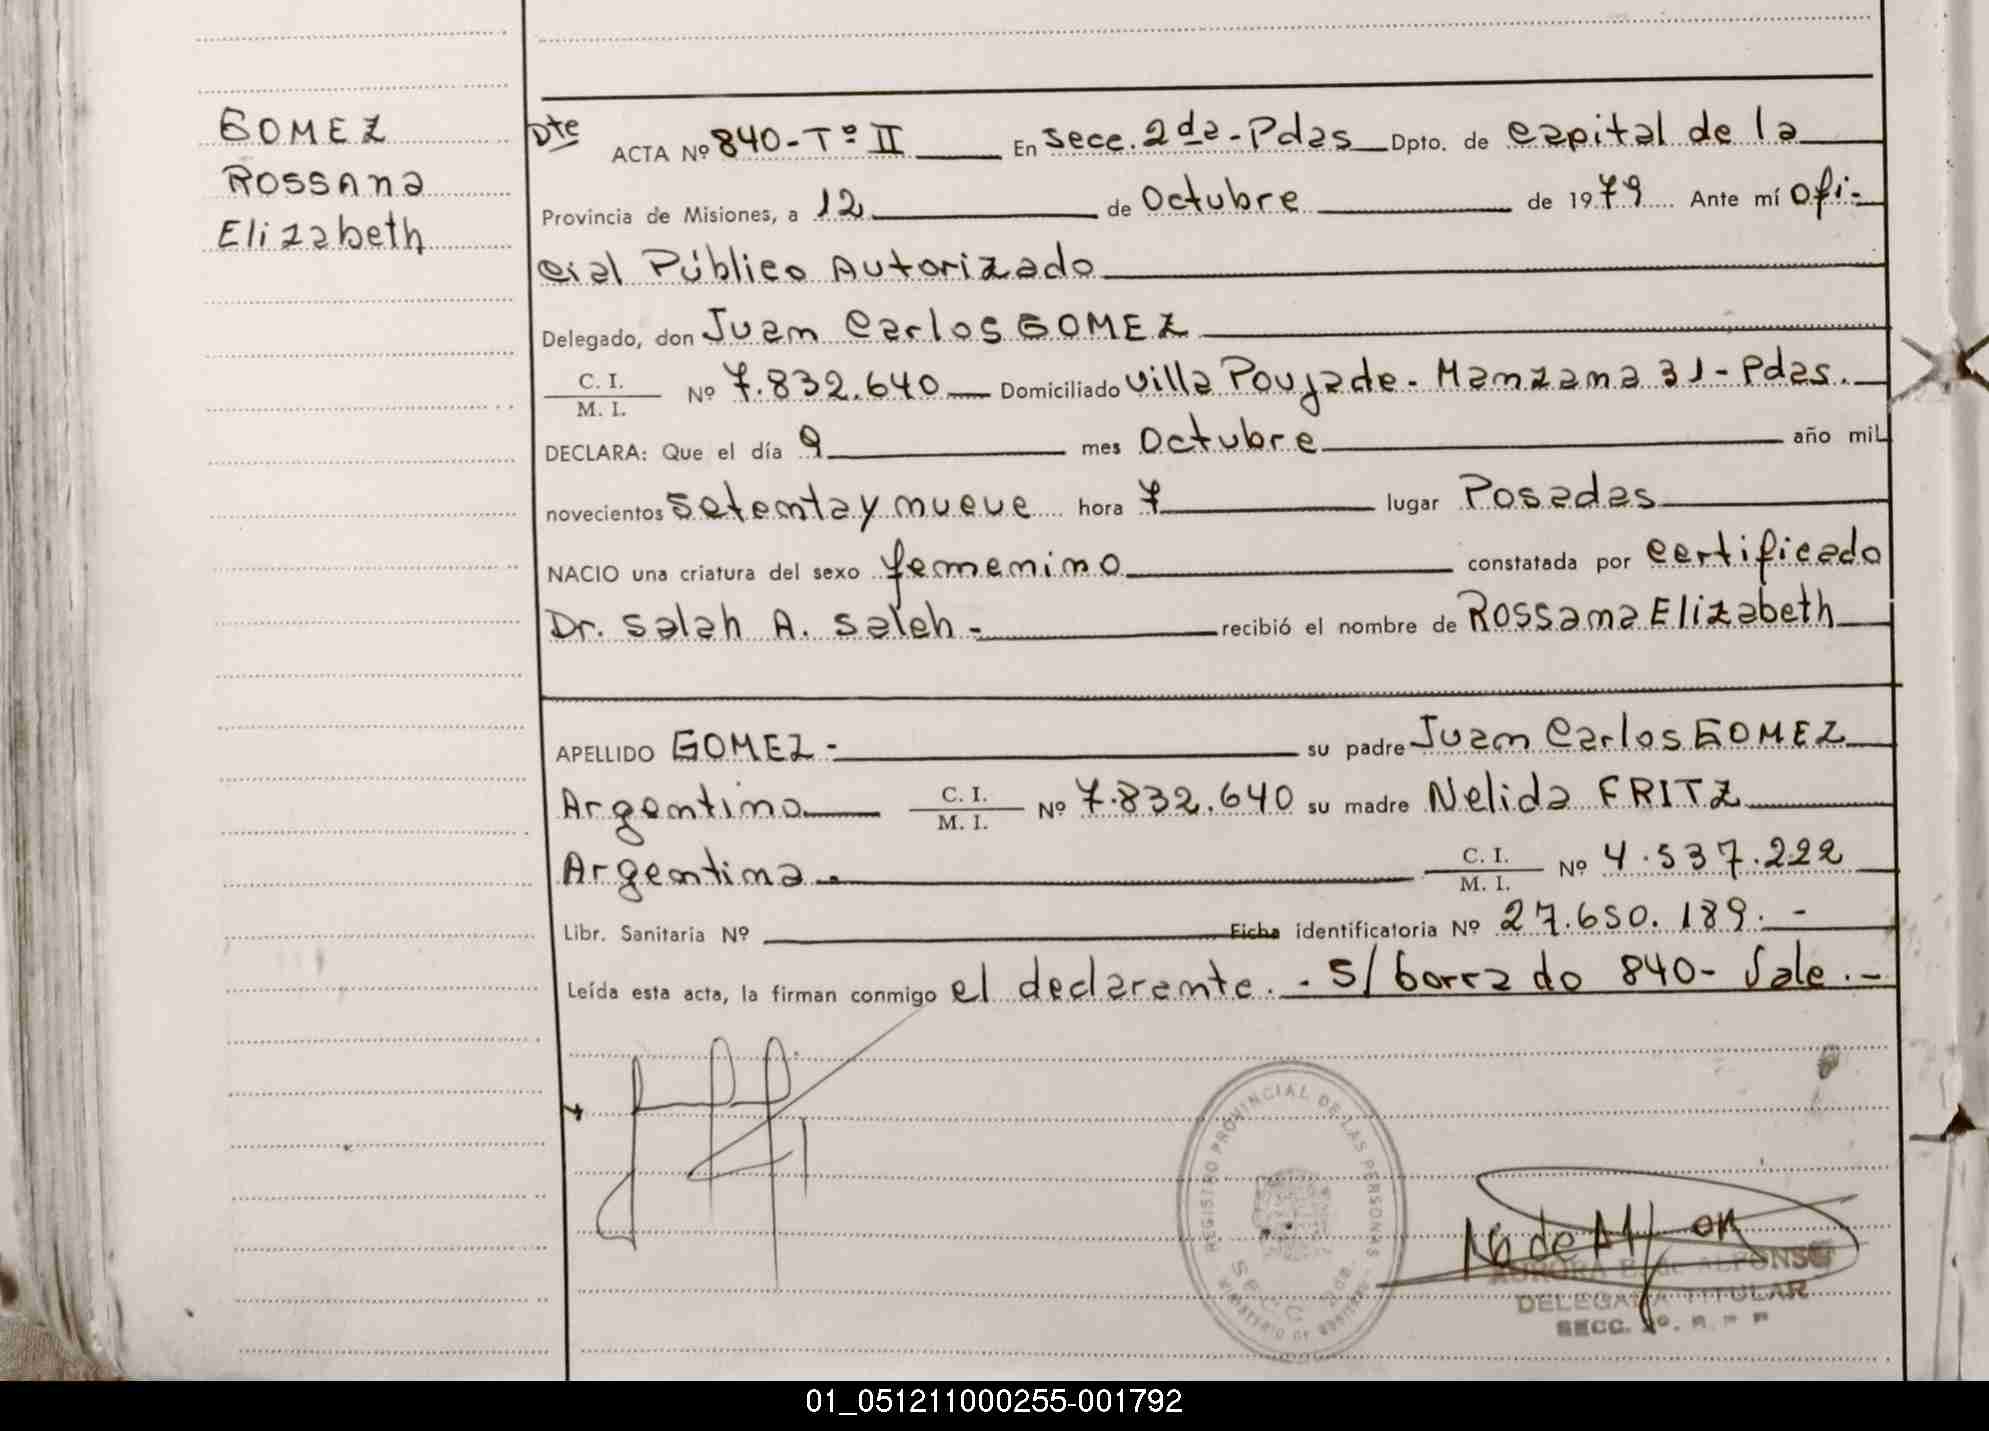 GOMEZ
ROSSAna
Elizabeth
Dte ACTA Nº 840-Tº II En Secc. 2da-Pdas Dpto. de Capital de la
Provincia de Misiones, a 12 de Octubre de 1979 Ante mí Ofi-
cial Público Autorizado
Delegado, don Juan Carlos GOMEZ
C. I.
M. I. Nº 7.832.640 Domiciliado Villa Poujade - Manzana 31 - Pdas.
DECLARA: Que el día 9 mes Octubre año mil
novecientos Setenta y nueve hora 7 lugar Posadas
NACIO una criatura del sexo femenino constatada por Certificado
Dr. Salah A. Saleh - recibió el nombre de Rossana Elizabeth
APELLIDO GOMEZ - su padre Juan Carlos GOMEZ
Argentino C. I. M. I. Nº 7.832.640 su madre Nelida FRITZ
Argentina. C. I. M. I. Nº 4.537.222
Libr. Sanitaria Nº Ficha identificatoria Nº 27.650.189. -
Leída esta acta, la firman conmigo el declarante. - S/borrado 840- Vale. -
REGISTRO PROVINCIAL DE LAS PERSONAS
SECC. 2da.
AURORA B. de ALFONSO
DELEGADA TITULAR
SECC.
01_051211000255-001792